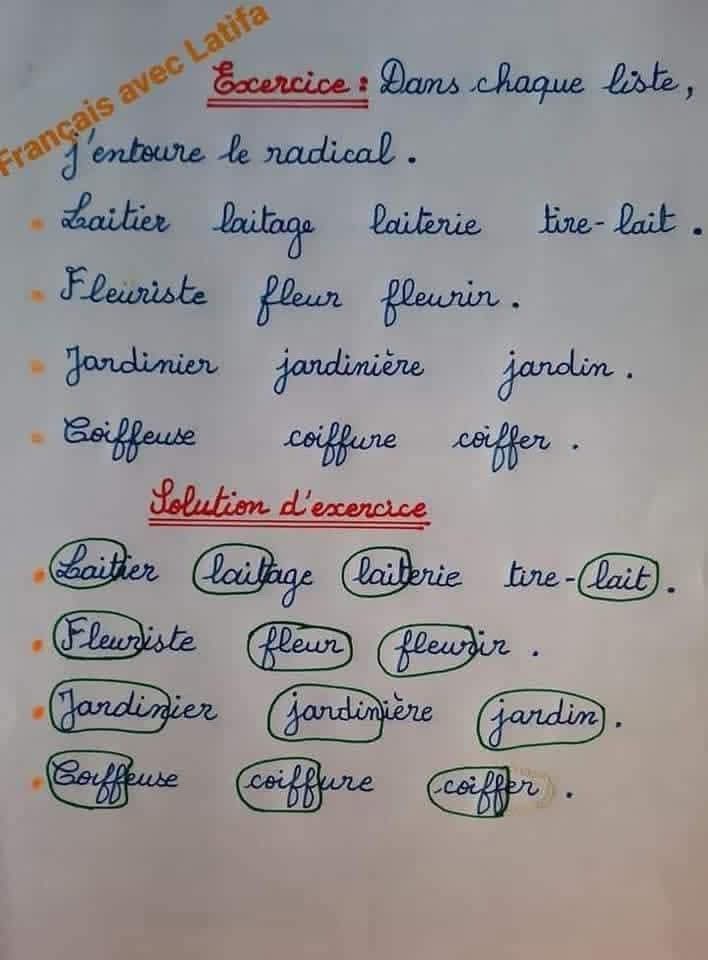 Français avec Latifa
Exercice : Dans chaque liste,
j'entoure le radical .
Laitier laitage laiterie tire-lait .
Fleuriste fleur fleurir .
Jardinier jardinière jardin .
Coiffeuse coiffure coiffer .
Solution d'exercice
Laitier laitage laiterie tire-lait .
Fleuriste fleur fleurir .
Jardinier jardinière jardin .
Coiffeuse coiffure coiffer .